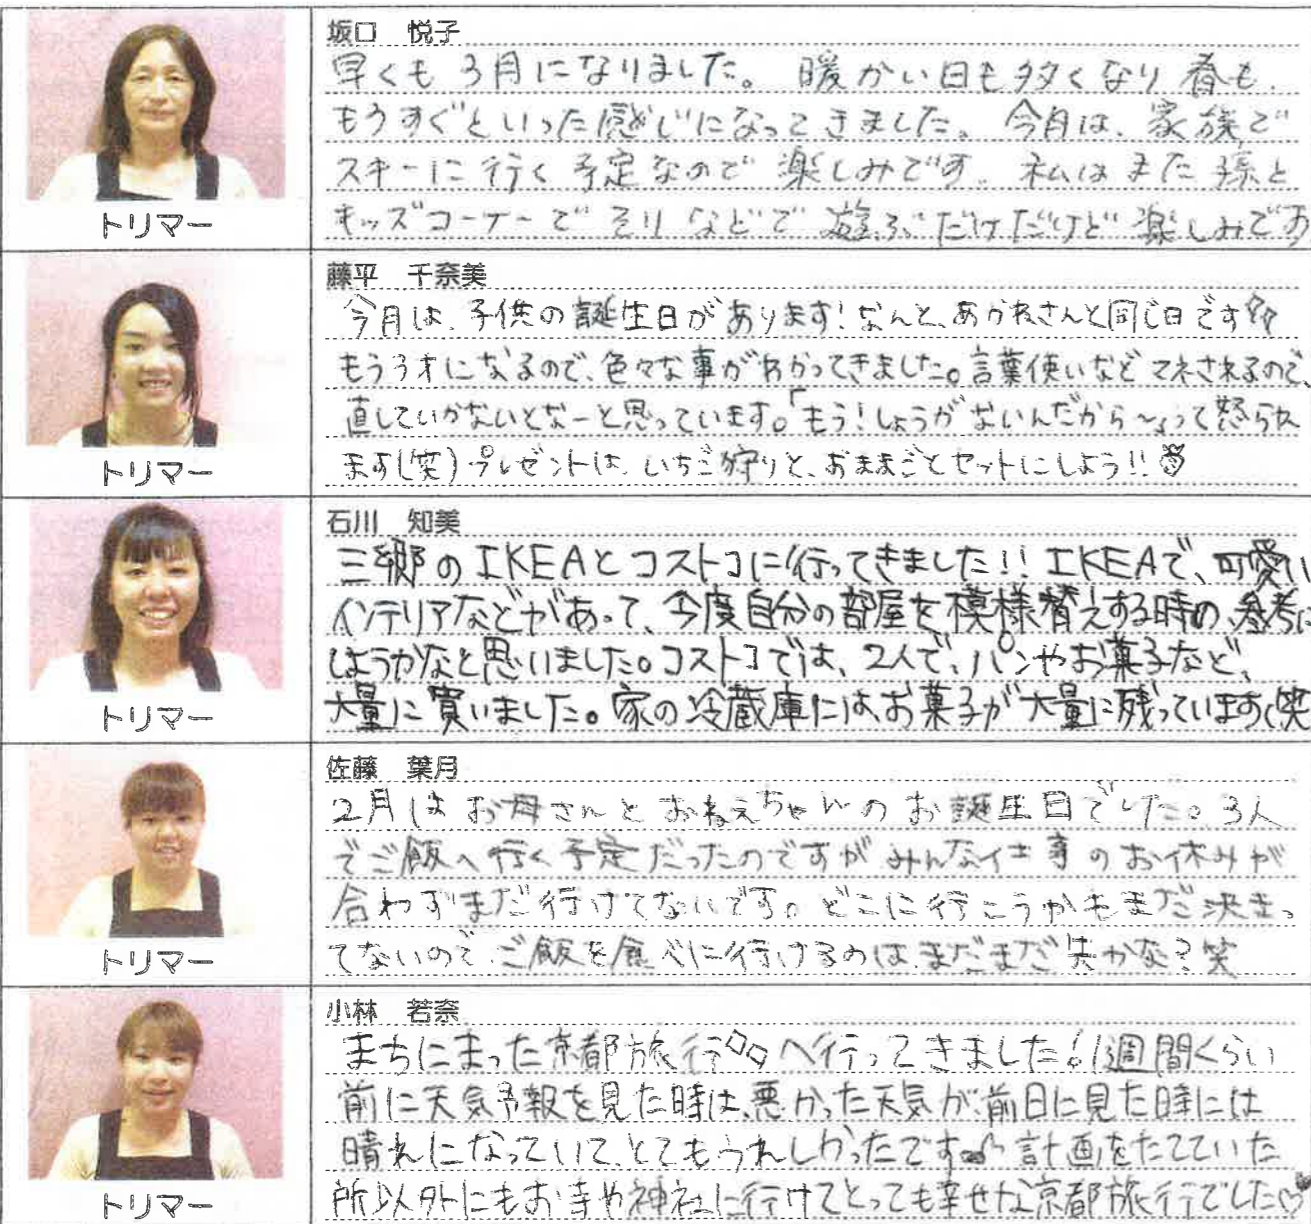 坂口 悦子
早くも3月になりました。暖かい日も多くなり春も
もうすぐといった感じになってきました。今月は、家族で
スキーに行く予定なので楽しみです。私はまた孫と
キッズコーナーでそりなどで遊ぶだけだけど楽しみです
トリマー
藤平 千奈美
今月は、子供の誕生日があります!なんと、あかねさんと同じ日です
もう3才になるので、色々な事がわかってきました。言葉使いなどマネされるので、
直していかないとなーと思っています。「もう!しょうがないんだから～」って怒られ
ます(笑)プレゼントは、いちご狩りと、おままごとセットにしよう!!
トリマー
石川 知美
三郷のIKEAとコストコに行ってきました!!IKEAで、可愛い
インテリアなどがあって、今度自分の部屋を模様替えする時の、参考に
しようかなと思いました。コストコでは、2人で、パンやお菓子など、
大量に買いました。家の冷蔵庫には、お菓子が大量に残っています(笑
トリマー
佐藤 葉月
2月はお母さんとおねえちゃんのお誕生日でした。3人
でご飯へ行く予定だったのですがみんな仕事のお休みが
合わずまだ行けてないです。どこに行こうかもまだ決まっ
てないので、ご飯を食べに行けるのは、まだまだ先かな?笑
トリマー
小林 若奈
まちにまった京都旅行へ行ってきました!1週間くらい
前に天気予報を見た時は、悪かった天気が、前日に見た時には
晴れになっていて、とてもうれしかったです 計画をたてていた
所以外にもお寺や神社に行けてとっても幸せな京都旅行でした♡
トリマー